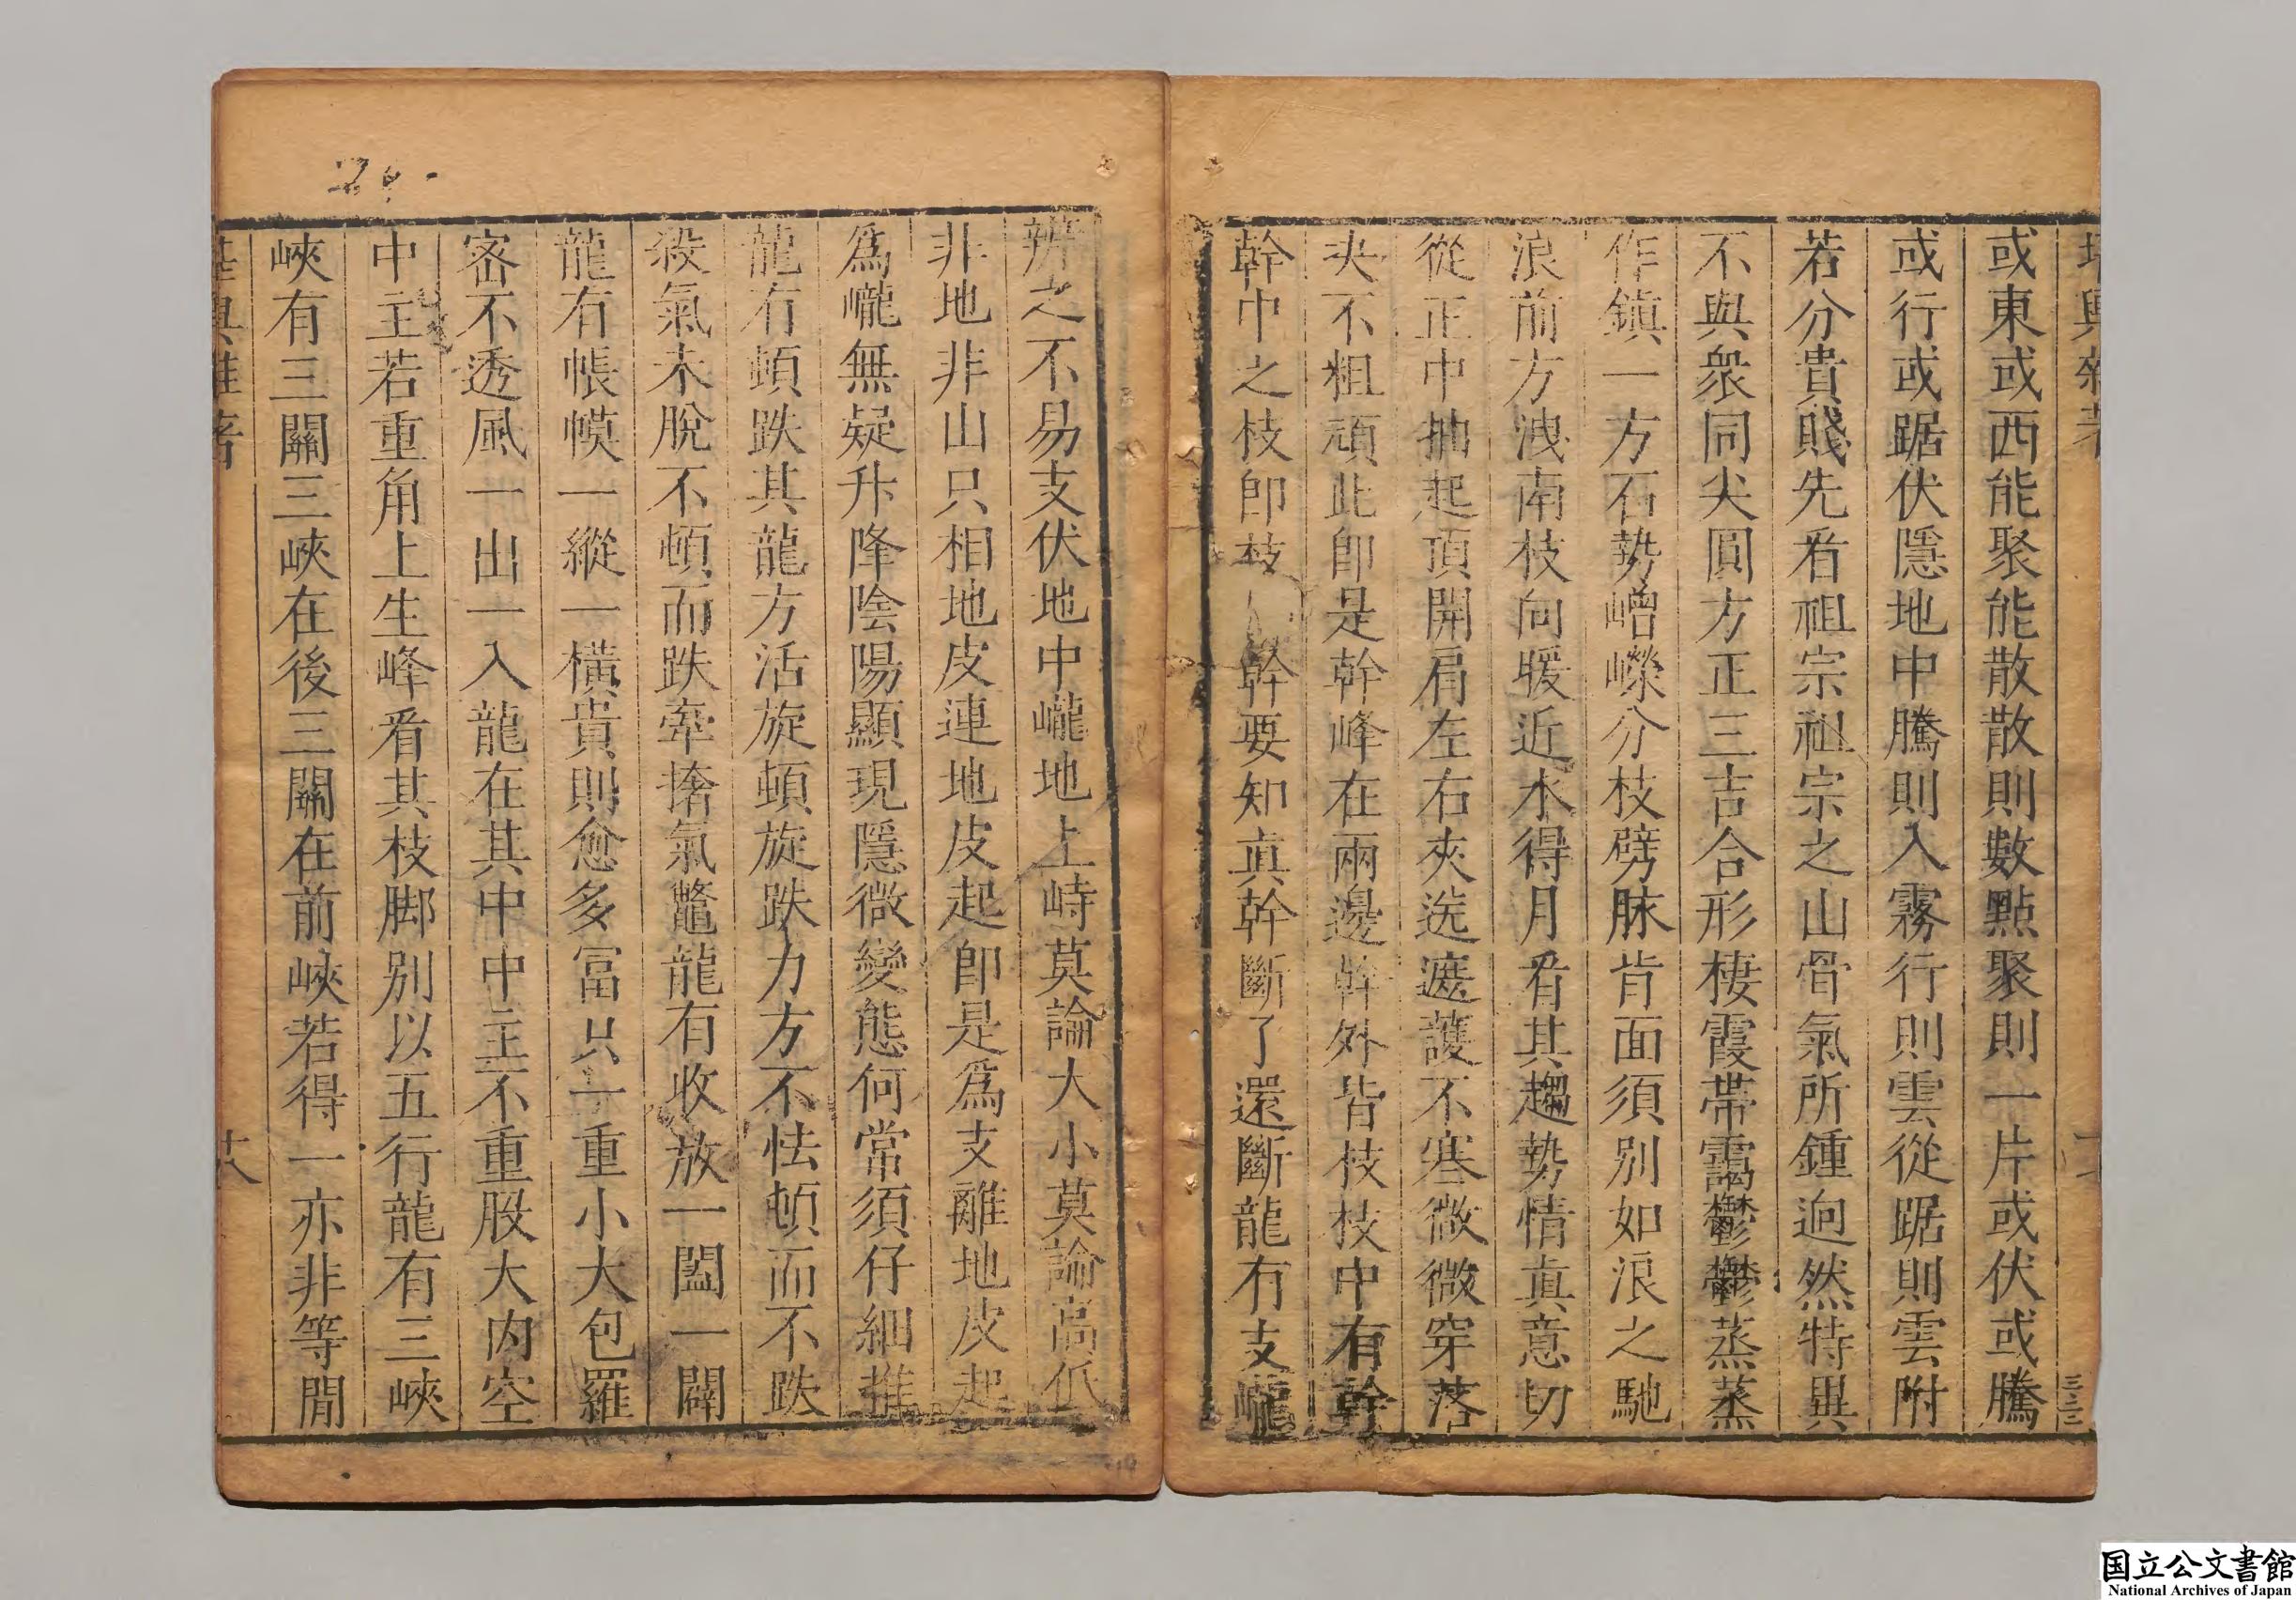 堪輿雜著
或東或西能聚能散散則數點聚則一片或伏或騰
或行或踞伏隱地中騰則入霧行則雲從踞則雲附
若分貴賤先看祖宗祖宗之山骨氣所鍾逈然特異
不與衆同尖圓方正三吉合形棲霞帶靄鬱鬱蒸蒸
作鎮一方石勢嶒嶸分枝劈脉背面須別如浪之馳
浪前方洩南枝向暖近水得月看其趨勢情真意切
從正中抽起頂開肩左右夾送遮護不塞微微穿落
夹不粗頑此卽是幹峰在兩邊幹外皆枝枝中有幹
幹中之枝卽枝 幹要知真幹斷了還斷龍有支巃
辨之不易支伏地中巃地上峙莫論大小莫論高低
非地非山只相地皮連地皮起卽是爲支離地皮起
爲巃無疑升降陰陽顯現隱微變態何常須仔細推
龍有頓跌其龍方活旋頓旋跌力方不怯頓而不跌
殺氣未脫不頓而跌牽搭氣鼈龍有收放一闔一闢
龍有帳幙一縱一橫貴則愈多富只一重小大包羅
密不透風一出一入龍在其中中主不重股大肉空
中主若重角上生峰看其枝脚別以五行龍有三峽
峽有三關三峽在後三關在前峽若得一亦非等閒
堪輿雜著
十八
国立公文書館
National Archives of Japan